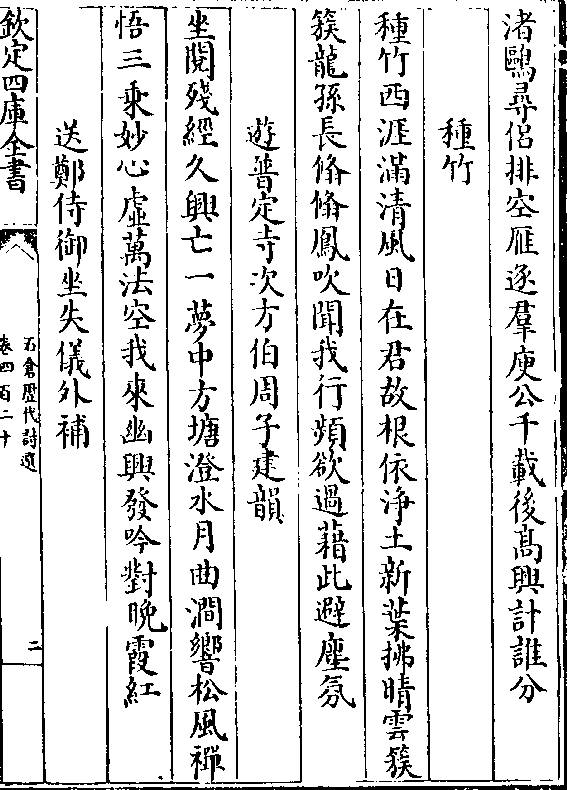 渚鷗尋侣排空雁逐羣庾公千載後髙興計誰分
種竹
種竹西涯滿清風日在君故根依淨土新葉拂晴雲簇
簇龍孫長翛翛鳳吹聞我行頻欲過藉此避塵氛
遊普定寺次方伯周子建韻
坐閱殘經久興亡一夢中方塘澄水月曲澗響松風禪
悟三乗妙心虛萬法空我來幽興發吟對晚霞紅
送鄭侍御坐失儀外補
欽定四庫全書
石倉歷代詩選
卷四百二十
二